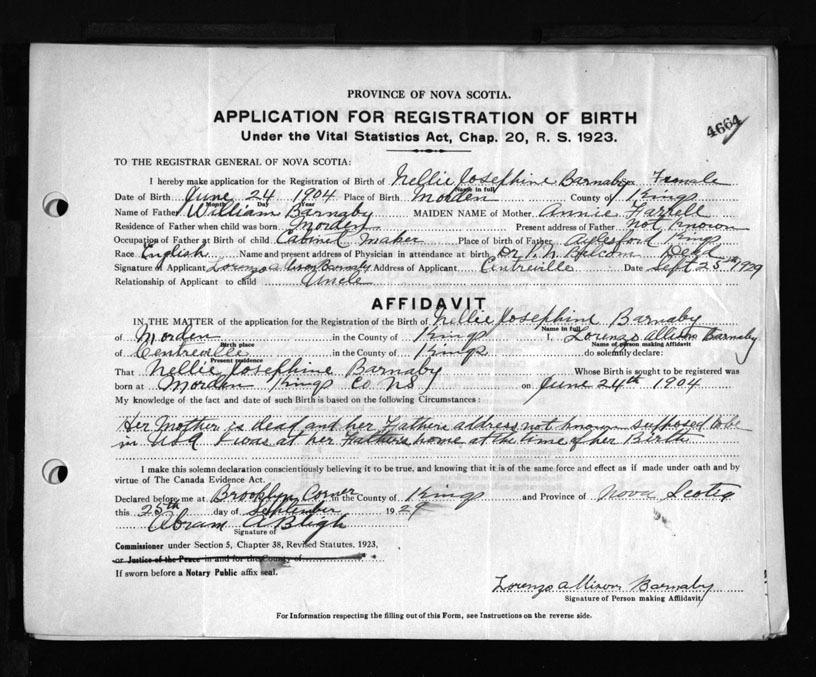 PROVINCE OF NOVA SCOTIA.
APPLICATION FOR REGISTRATION OF BIRTH
4664
Under the Vital Statistics Act, Chap. 20, R. S. 1923.
TO THE REGISTRAR GENERAL OF NOVA SCOTIA:
I hereby make application for the Registration of Birth of Nellie Josephine Barnaby Female
Name in full
Date of Birth June 24 1904 Place of Birth Morden County of Kings
Month Day Year
Name of Father William Barnaby MAIDEN NAME of Mother Annie Farrell
Residence of Father when child was born Morden Present address of Father Not Known
Occupation of Father at Birth of child Cabinet Maker Place of birth of Father Aylesford Kings
Race English Name and present address of Physician in attendance at birth Dr Balcom Dead
Signature of Applicant Lorenzo Allison Barnaby Address of Applicant Centreville Date Sept 25th 1929
Relationship of Applicant to child Uncle
AFFIDAVIT
IN THE MATTER of the application for the Registration of the Birth of Nellie Josephine Barnaby
Name in full
of Morden in the County of Kings I, Lorenzo Allison Barnaby
Birth place Name of person making Affidavit
of Centreville in the County of Kings do solemnly declare:
Present residence
That Nellie Josephine Barnaby Whose Birth is sought to be registered was
born at Morden Kings Co NS on June 24th 1904
My knowledge of the fact and date of such Birth is based on the following Circumstances:
Her Mother is dead and her Fathers address not known supposed to be
in USA I was at her Fathers home at the time of her Birth
I make this solemn declaration conscientiously believing it to be true, and knowing that it is of the same force and effect as if made under oath and by
virtue of The Canada Evidence Act.
Declared before me at Brooklyn Corner in the County of Kings and Province of Nova Scotia
this 25th day of September 1929
Abram A Bligh
Signature of
Commissioner under Section 5, Chapter 38, Revised Statutes, 1923,
or Justice of the Peace in and for the County of
If sworn before a Notary Public affix seal.
Lorenzo Allison Barnaby
Signature of Person making Affidavit.
For Information respecting the filling out of this Form, see Instructions on the reverse side.